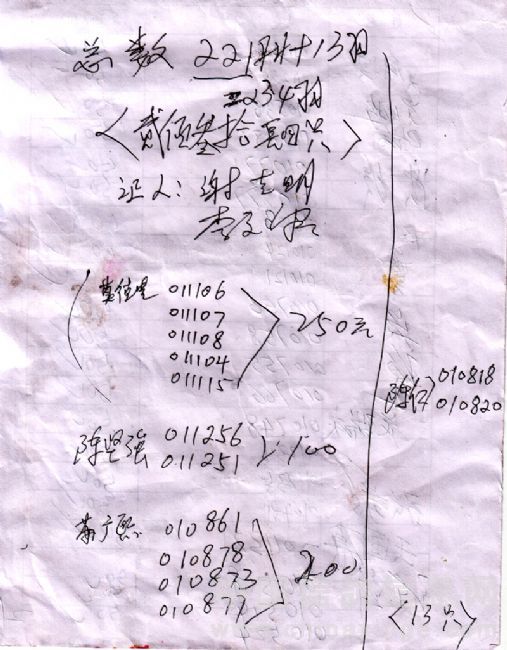 总数 221羽+13羽
=234羽
〈贰佰叁拾肆只〉
证人：谢志明
011106
011107
011108
011104
011115
250元
陈坚强 011256
011251
100
010861
010878
010873
010877
200
陈仁 010818
010820
〈13只〉